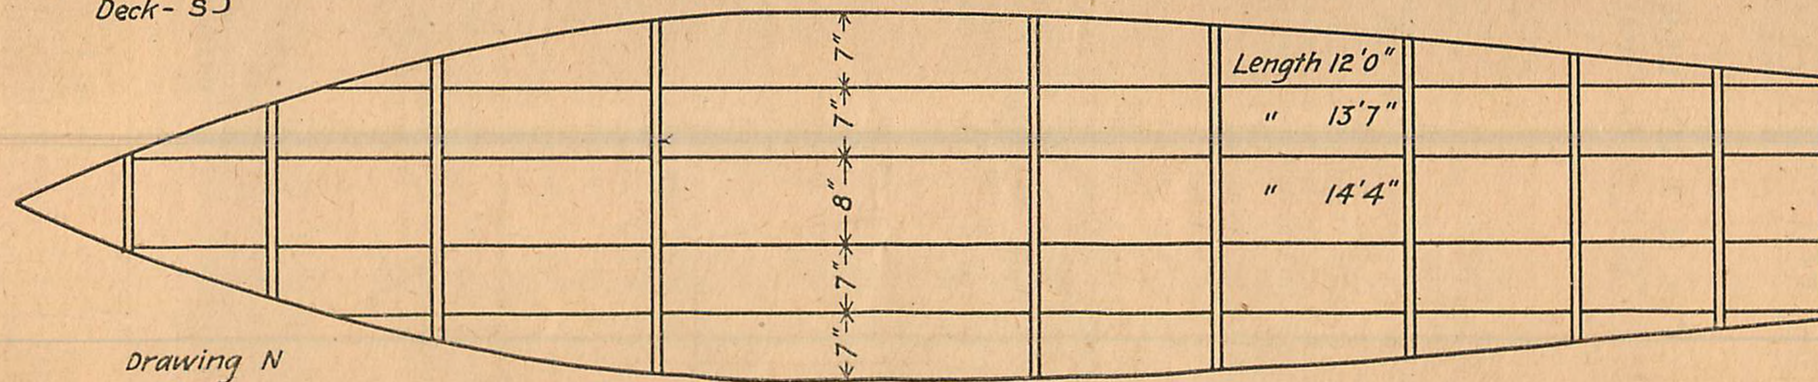 Deck- S
7"
7"
8"
7"
7"
Length 12'0"
" 13'7"
" 14'4"
Drawing N